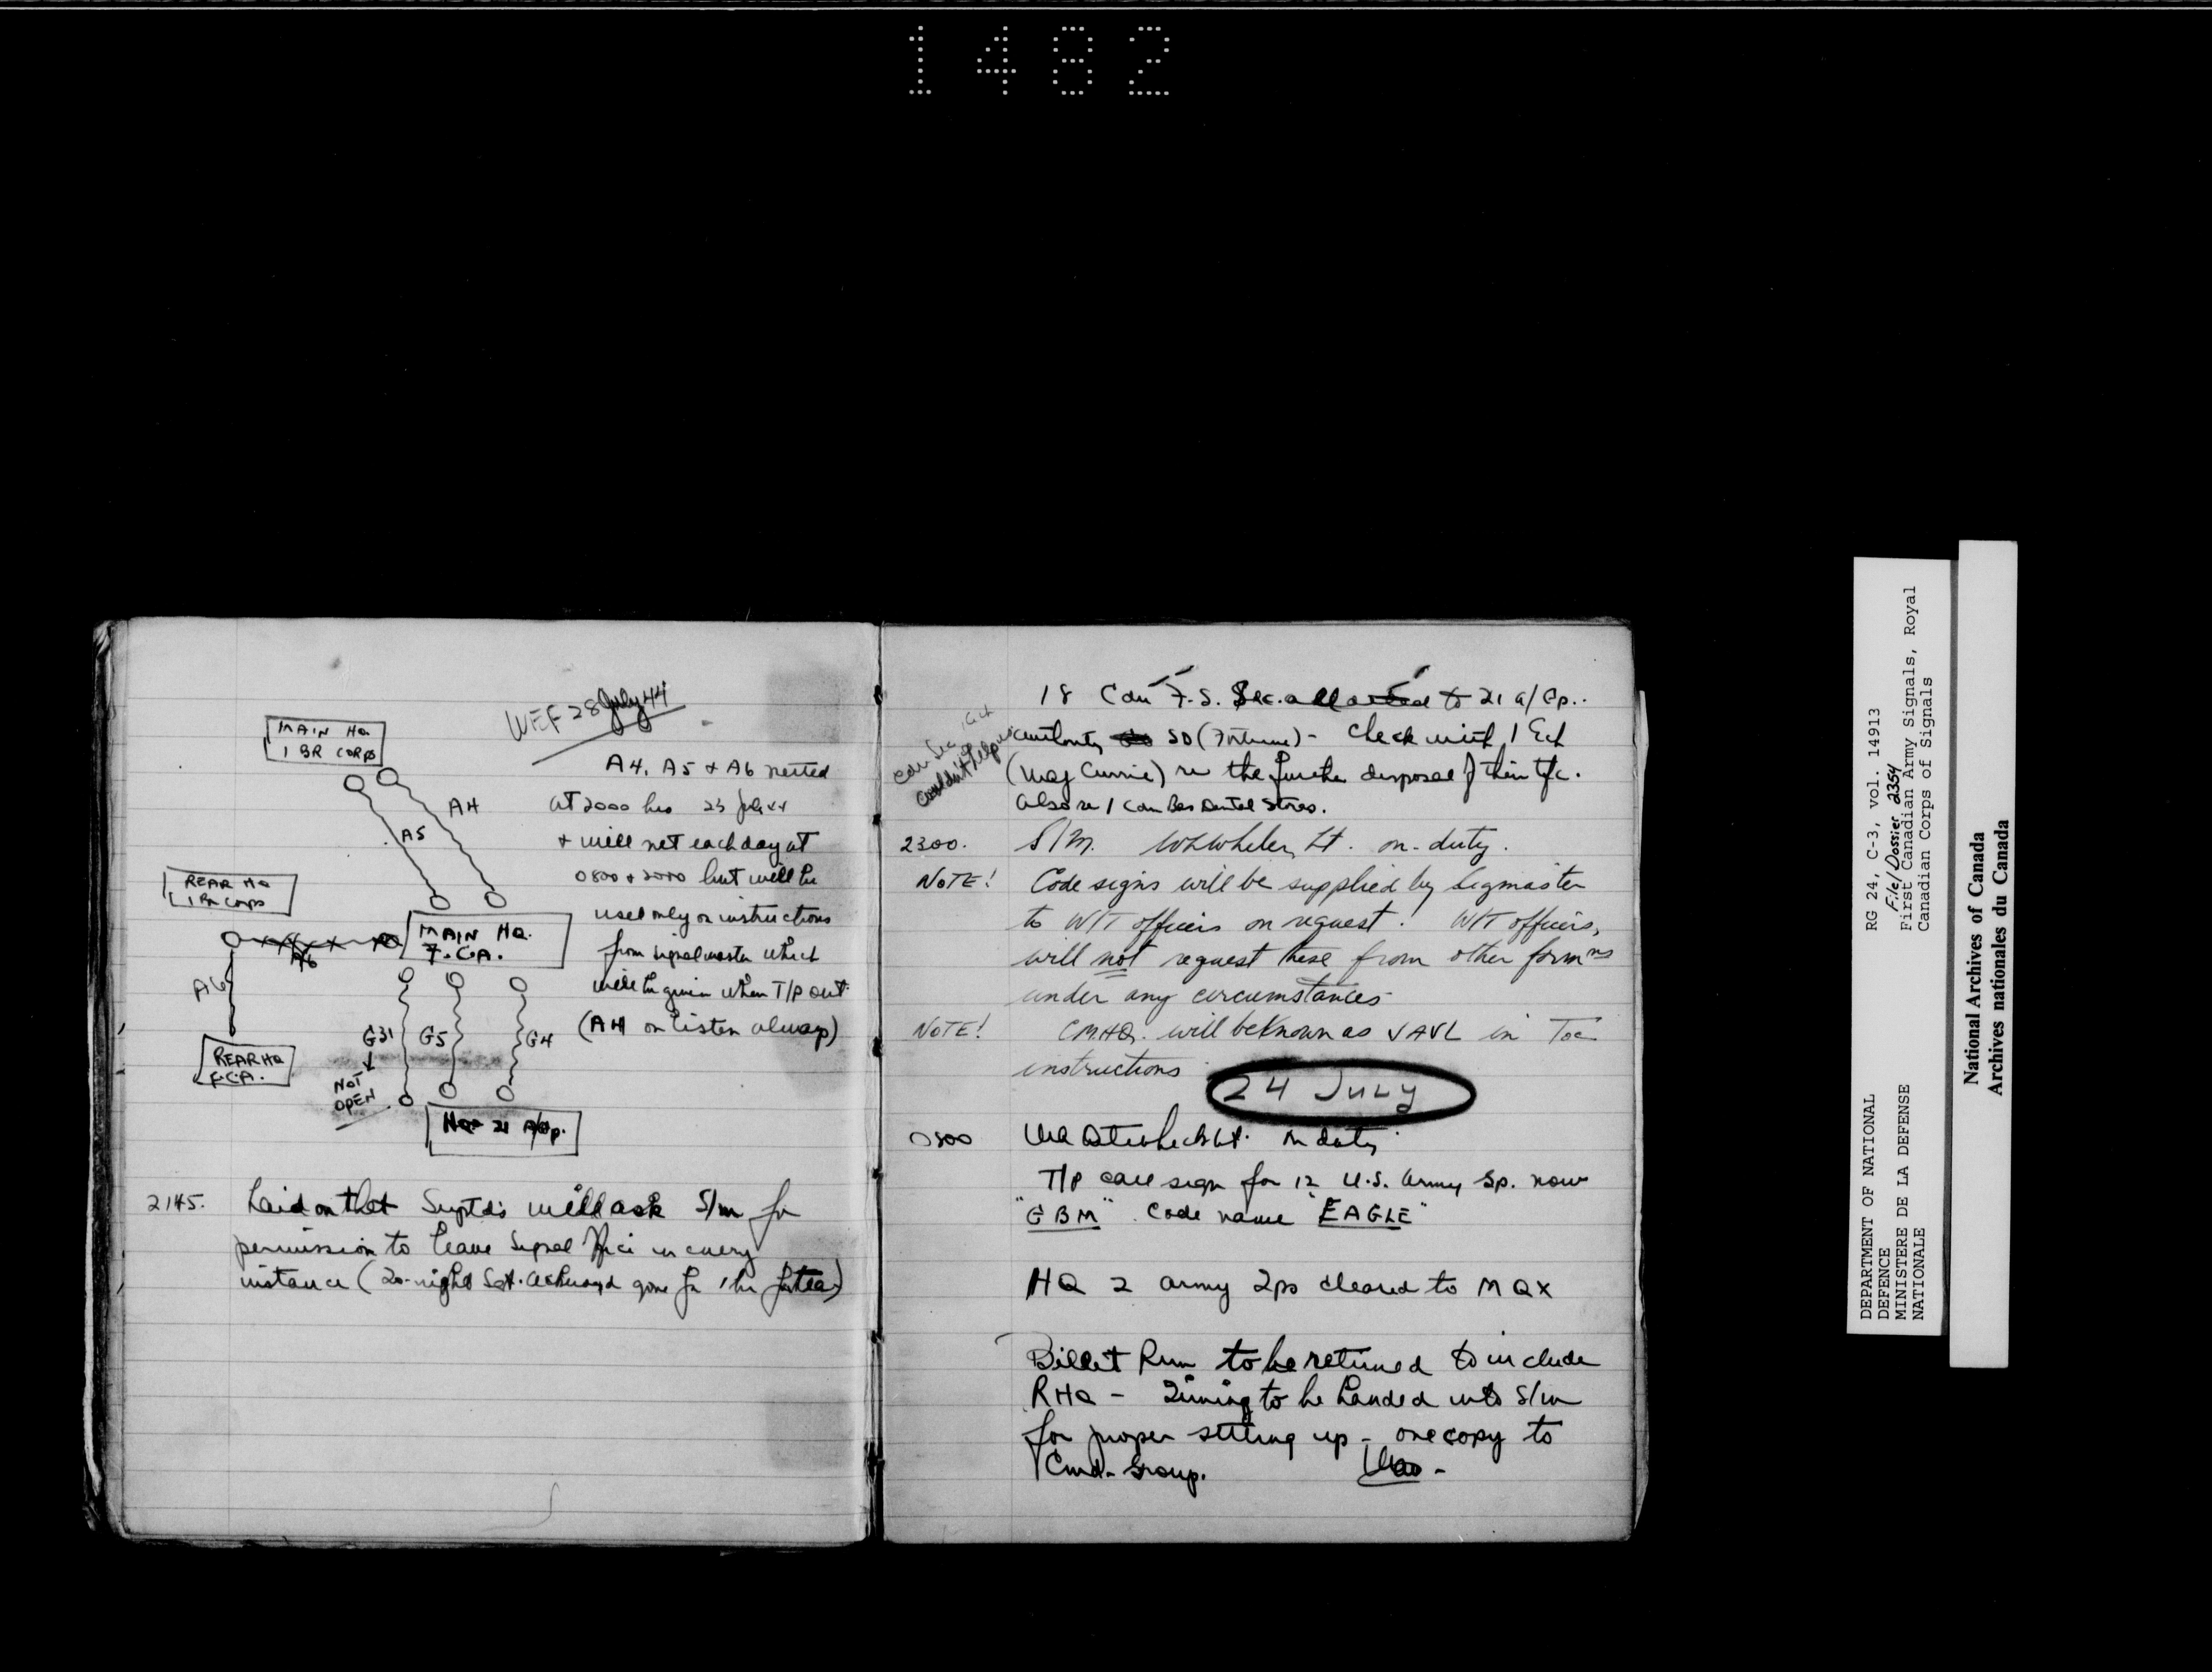 1482
WEF 28 July 44
MAIN HQ
1 BR CORPS
A4, A5 + A6 netted
at 2000 hrs 23 July 44
+ will net each day at
0800 + 2000 but will be
used only on instructions
from signalmaster which
will be given when T/P out
(A4 on listen always)
A4
A5
REAR HQ
1 Br Corps
MAIN HQ.
F.C.A.
A6
A6
REAR HQ
F.C.A.
G31
G5
G4
NOT
OPEN
HQ 21 A/Gp.
2145. Laid on that Suptds will ask S/m for
permission to leave Signal Office in every
instance (To-night Sgt. gone for 1 hr for tea)
18 Cdn F.S. Sec. to 21 A/Gp..
authority SD (Fortune) - Check with 1 Ech
(Maj Currie) re the further disposal of their tfc.
also re 1 Cdn Bas Dental Stres.
Cdn Sec 1 Ech
couldn't help us
2300. S/M. Lt. on-duty.
NOTE! Code signs will be supplied by Sigmaster
to W/T officers on request. W/T officers,
will not request these from other formns
under any circumstances
NOTE! CMHQ. will be known as VAVL in Toc
instructions
24 JULY
0800 Lt. on duty
T/P call sign for 12 U.S. Army Gp. now
"GBM". Code name "EAGLE"
HQ 2 army 2ps cleared to MQX
Billet Run to be retimed to include
RHQ - Timing to be handed into S/m
for proper setting up - one copy to
Cmd. Group.
DEPARTMENT OF NATIONAL
DEFENCE
MINISTERE DE LA DEFENSE
NATIONALE
RG 24, C-3, vol. 14913
File/Dossier 2354
First Canadian Army Signals, Royal
Canadian Corps of Signals
National Archives of Canada
Archives nationales du Canada